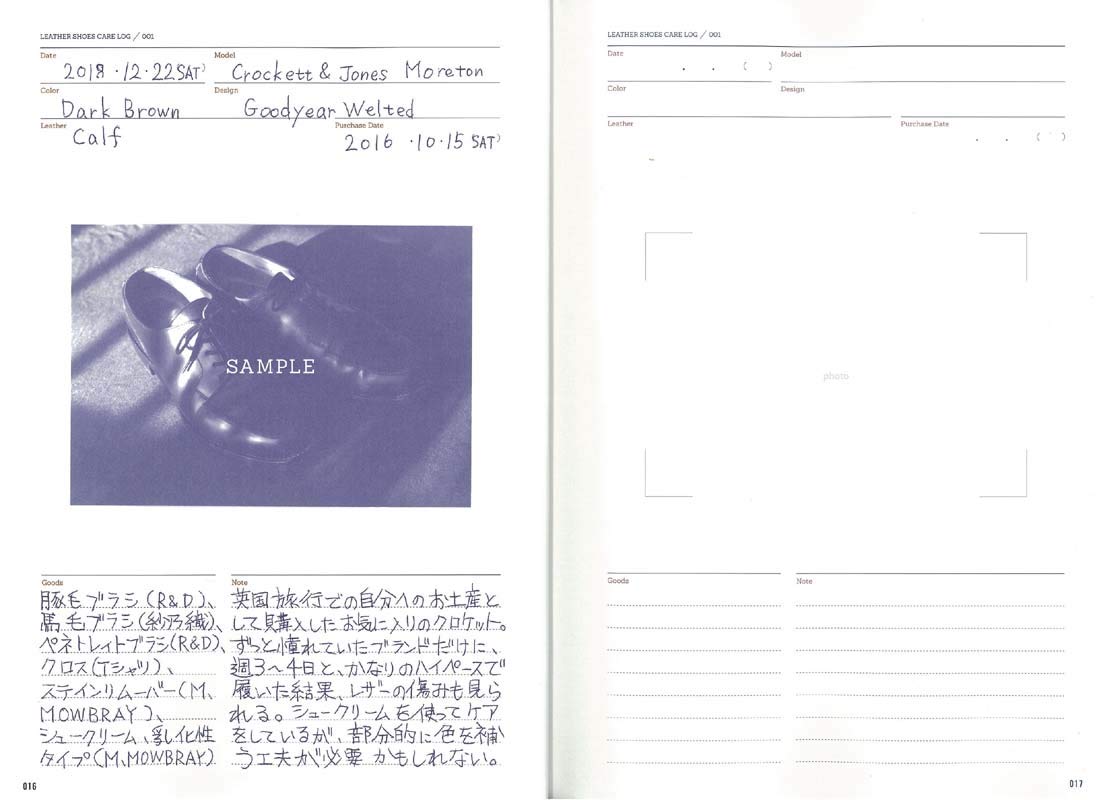 LEATHER SHOES CARE LOG / 001
Date
Model
2018 ・12・22 SAT)
Crockett & Jones Moreton
Color
Design
Dark Brown
Goodyear Welted
Leather
Purchase Date
Calf
2016 ・10・15 SAT)
SAMPLE
Goods
豚毛ブラシ(R&D)、
馬毛ブラシ(紗乃織)、
ペネトレイトブラシ(R&D)、
クロス(Tシャツ)、
ステインリムーバー(M.
MOWBRAY)、
シュークリーム、乳化性
タイプ(M.MOWBRAY)
Note
英国旅行での自分へのお土産と
して購入したお気に入りのクロケット。
ずっと憧れていたブランドだけに、
週3〜4日と、かなりのハイペースで
履いた結果、レザーの傷みも見ら
れる。シュークリームを使ってケア
をしているが、部分的に色を補
う工夫が必要かもしれない。
016
LEATHER SHOES CARE LOG / 001
Date
Model
. . ( )
Color
Design
Leather
Purchase Date
. . ( )
photo
Goods
Note
017